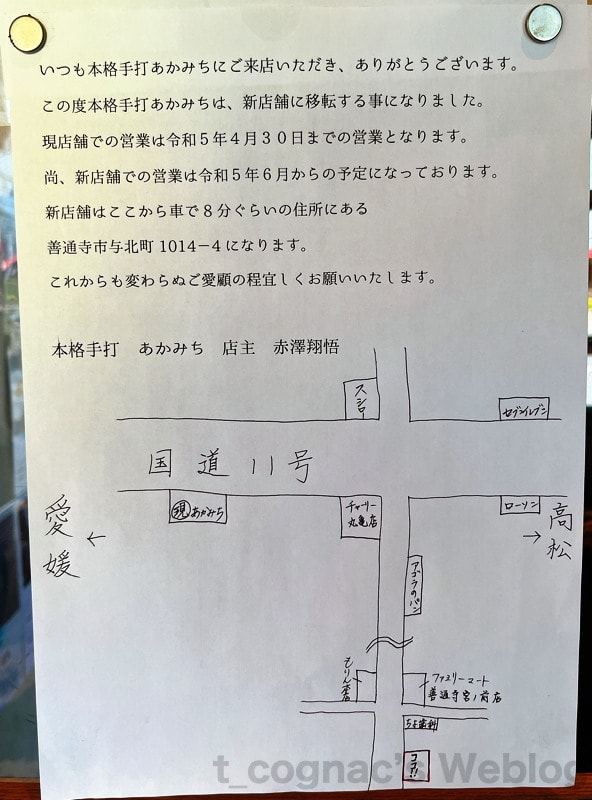 いつも本格手打あかみちにご来店いただき、ありがとうございます。
この度本格手打あかみちは、新店舗に移転する事になりました。
現店舗での営業は令和５年４月３０日までの営業となります。
尚、新店舗での営業は令和５年６月からの予定になっております。
新店舗はここから車で８分ぐらいの住所にある
善通寺市与北町 1014−4 になります。
これからも変わらぬご愛顧の程宜しくお願いいたします。
本格手打　あかみち　店主　赤澤翔悟
スシロー
セブンイレブン
国道11号
現 あかみち
チャーリー
丸亀店
ローソン
愛媛
←
→
高松
アゴラのパン
もりん本店
ファミリーマート
善通寺宮ノ前店
歯科
ココ!!
t_cognac's Weblog